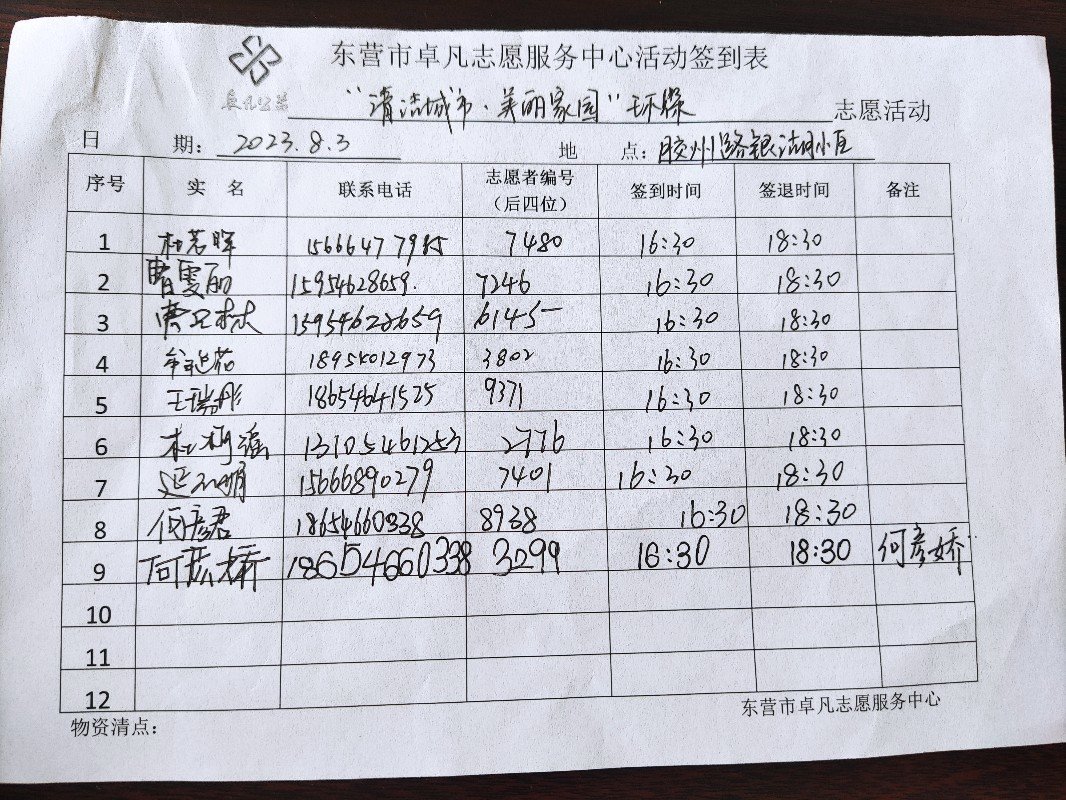 东营市卓凡志愿服务中心活动签到表
卓凡公益
“清洁城市·美丽家园”环保 志愿活动
日 期: 2023.8.3 地 点: 胶州路银湖小区
序号 实 名 联系电话 志愿者编号（后四位） 签到时间 签退时间 备注
1 杜若晖 15666477985 7480 16:30 18:30
2 曹雯丽 15954628659. 7246 16:30 18:30
3 曹卫林 15954628659 6145 16:30 18:30
4 18954012973 3802 16:30 18:30
5 王瑞彤 18654641525 9371 16:30 18:30
6 杜桐瑶 13105461253 2776 16:30 18:30
7 15666890279 7401 16:30 18:30
8 何彦君 18654660338 8938 16:30 18:30
9 何彦娇 18654660338 3299 16:30 18:30 何彦娇
10
11
12
物资清点: 东营市卓凡志愿服务中心